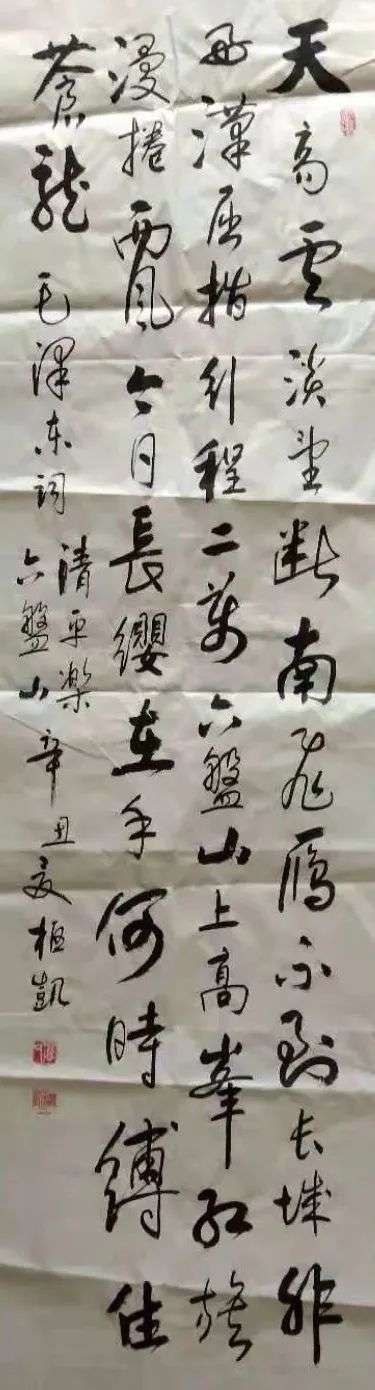 天高雲淡望斷南飛雁不到長城非
好漢屈指行程二萬六盤山上高峯紅旗
漫捲西風今日長纓在手何時縛住
蒼龍 毛澤東詞 清平樂 六盤山 辛丑夏 凱